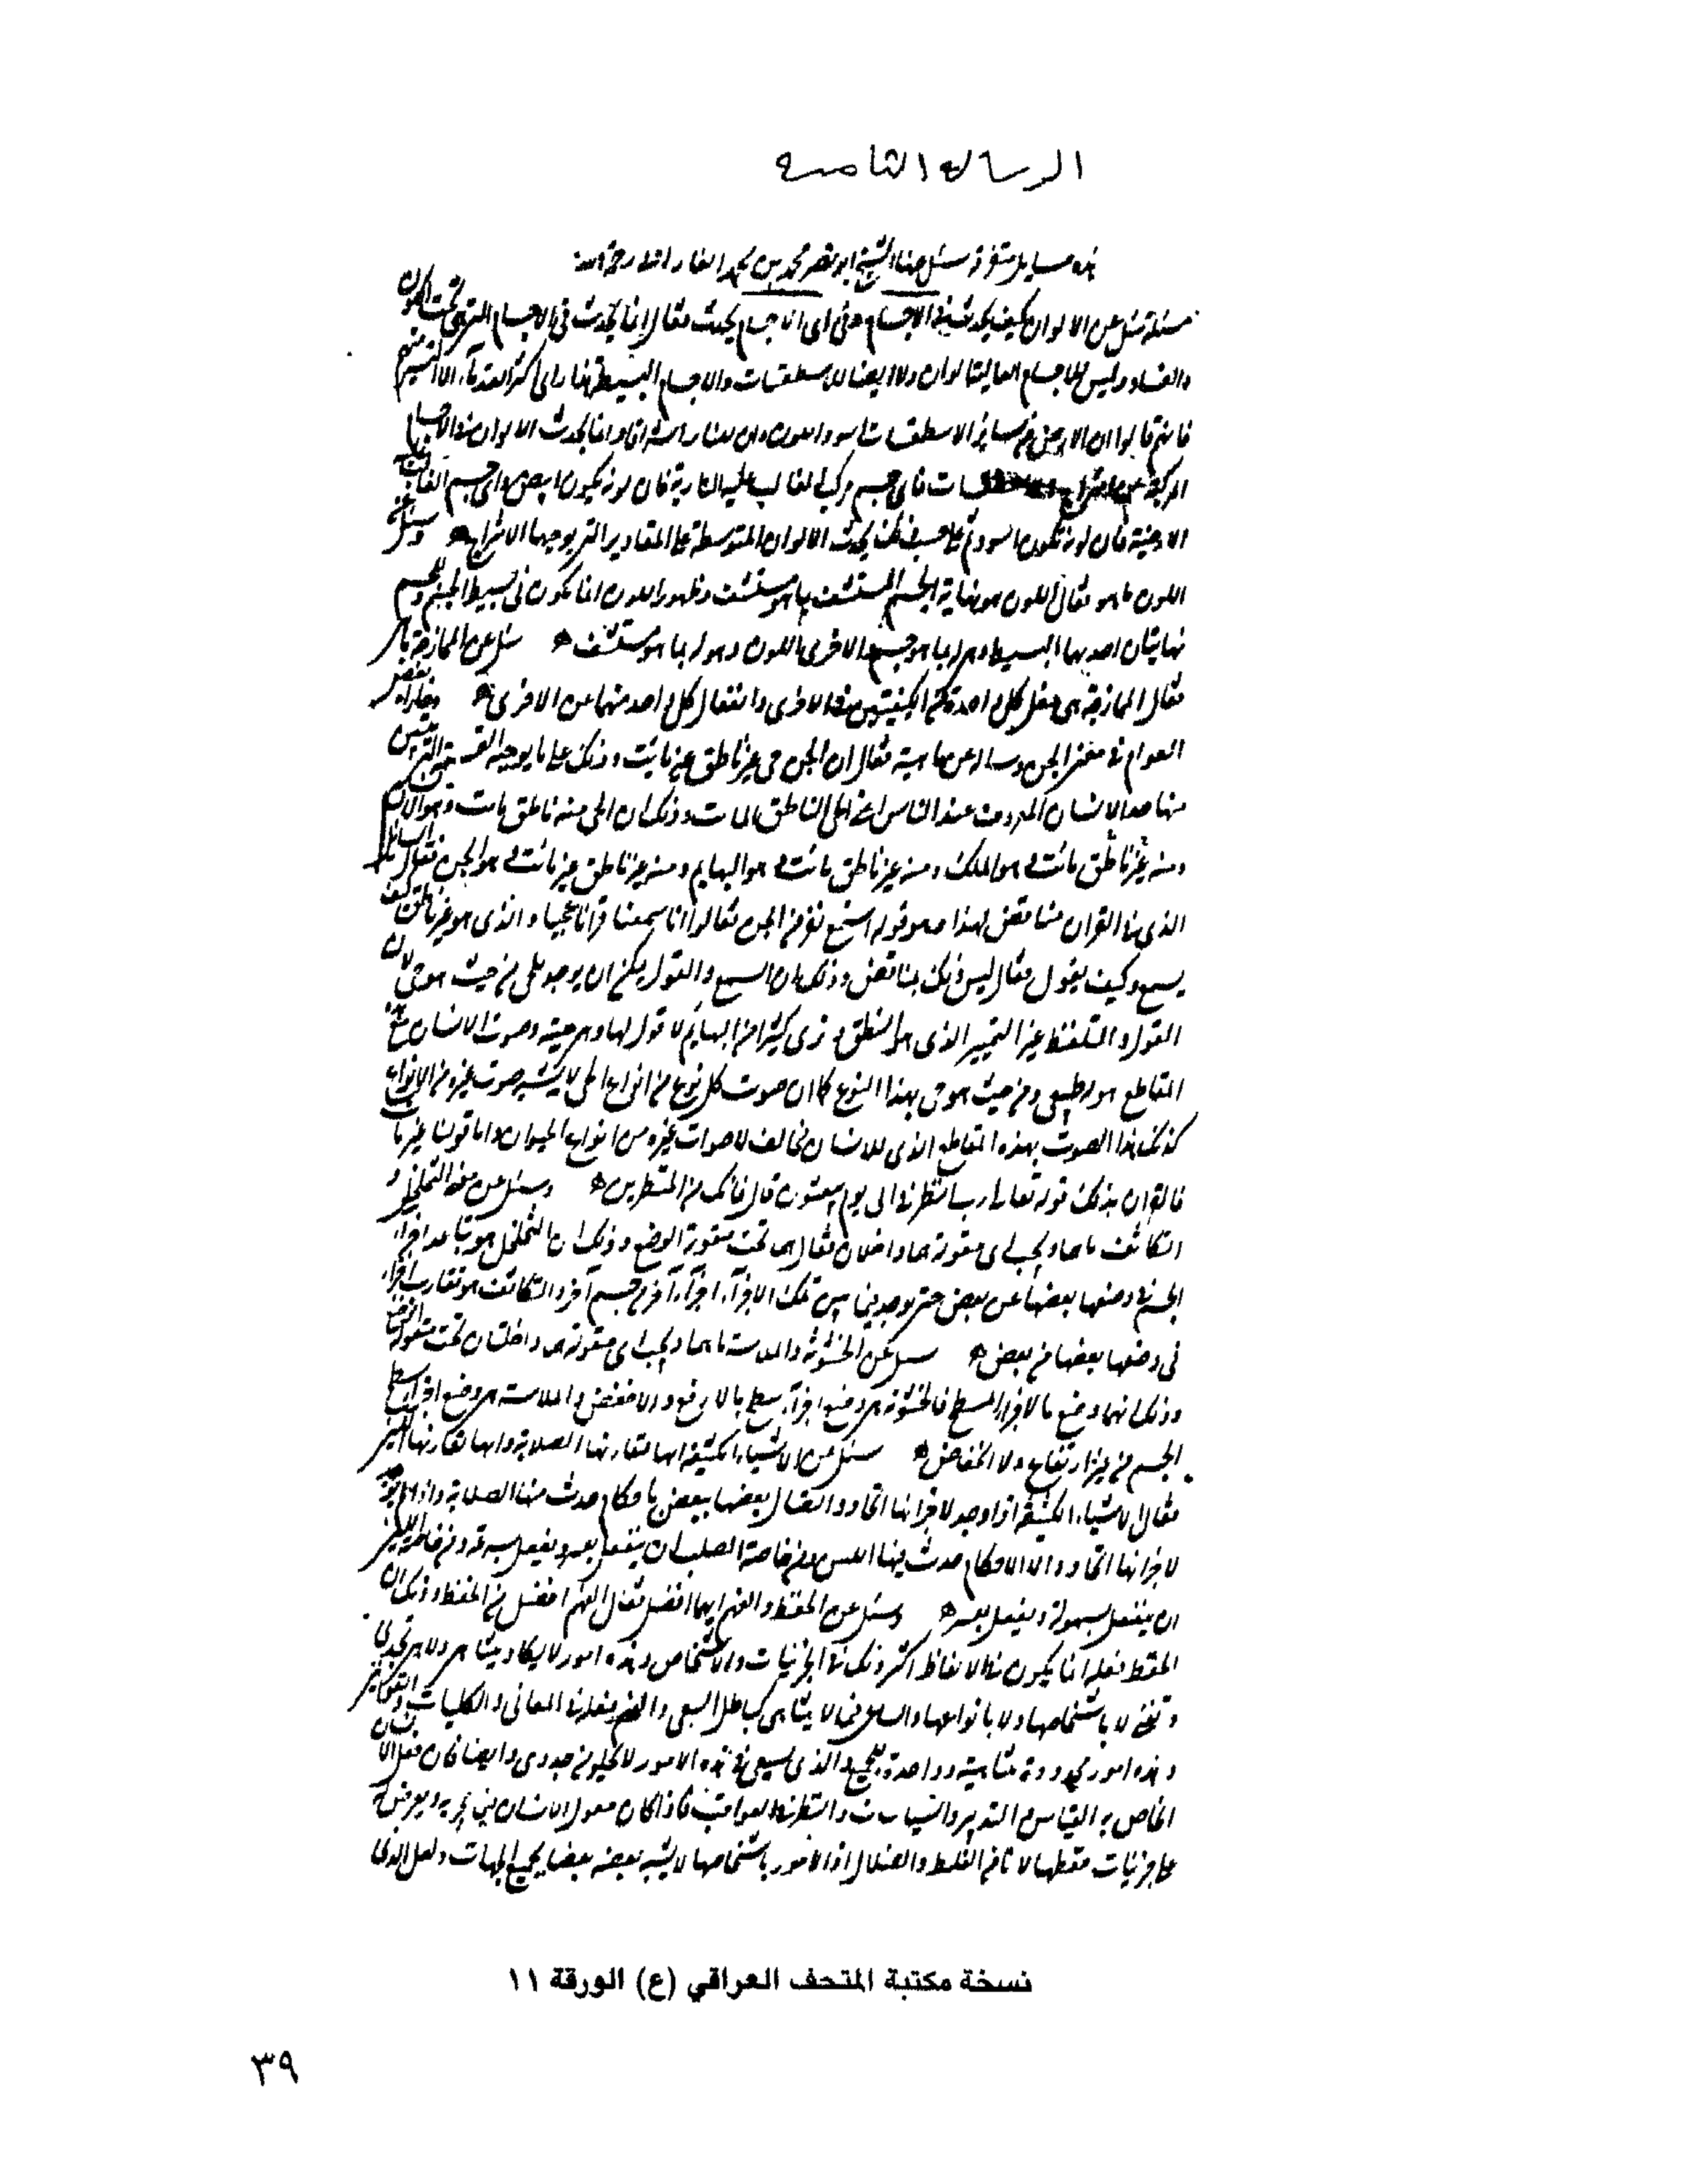 الرسالة الثامنة
هذه مسايل متفرقة سئل عنها الشيخ ابو نصر محمد بن محمد الفارابى رحمه الله
مسئلة سئل عن الالوان كيف يحدث فى الاجسام وفى اى الاجسام يحدث فقال انما يحدث فى الاجسام التى هى تحت الكون
والفساد وليس للاجسام العالية الوان ولا ايضا للاسطقسات والاجسام البسيطة هذا راى اكثر القدمآء الا اليسير منهم
فانهم قالوا ان الارض من ساير الاسطقسات اسود اللون وان للنار اشراقا وانما يحدث الالوان فى الاجسام
المركبة عن امتزاج الاسطقسات فاى جسم مركب الغالب عليه النارية فان لونه يكون ابيض واى جسم الغالب عليه
الارضية فان لونه يكون اسود ثم على حسب ذلك يحدث الالوان المتوسطة على المقادير التى يوجبها الامتزاج وسئل عن
اللون ما هو فقال اللون هو نهاية الجسم المستشف بما هو مستشف وظهور اللون انما يكون فى بسيط الجسم وللجسم
نهايتان احديهما البسيط وهى له بما هو جسم والاخرى اللون وهو له بما هو مستشف سئل عن الممازجة ما هى
فقال الممازجة هى فعل كل واحدة من الكيفيتين فى الاخرى وانفعال كل واحد منهما عن الاخرى
العوام فى معنى الجن وساله عن ماهيته فقال ان الجن حى غير ناطق غير مائت وذلك على ما يوجبه القسمة التى يتبين
منها حد الانسان المعروف عند الناس اعنى الحى الناطق المائت وذلك ان الحى منه ناطق مائت وهو الانسان
ومنه ناطق غير مائت وهو الملك ومنه غير ناطق مائت وهو البهايم ومنه غير ناطق غير مائت وهو الجن فقال السائل
الذى فى القران مناقض لهذا وهو قوله استمع نفر من الجن فقالوا انا سمعنا قرانا عجبا والذى هو غير ناطق كيف
يسمع وكيف يقول فقال ليس ذلك بمناقض وذلك ان السمع والقول يمكن ان يوجد للحى من حيث هو حى لان
القول والتلفظ غير التمييز الذى هو النطق وترى كثيرا من البهايم لا قول لها وهى حية وصوت الانسان مع هذه
المقاطع هو له طبيعى من حيث هو حى بهذا النوع كما ان صوت كل نوع من انواع الحى لا يشبه صوت غيره من الانواع
كذلك هذا الصوت بهذه المقاطع الذى للانسان مخالف لاصوات غيره من انواع الحيوان واما قولنا غير مائت
فالقران يدل بذلك قوله تعالى رب انظرنى الى يوم يبعثون قال فانك من المنظرين وسئل عن معنى التخلخل و
التكاثف ما هما وتحت اى مقولة هما داخلان فقال هما تحت مقولة الوضع وذلك ان التخلخل هو تباعد اجزاء
الجسم فى وضعها بعضها عن بعض حتى يوجد فيما بين تلك الاجزآء اجزآء اخر من جسم اخر والتكاثف هو تقارب اجزاء
فى وضعها بعضها من بعض سئل عن الخشونة والملاسة ما هما وتحت اى مقولة هما داخلتان تحت مقولة الوضع
وذلك انهما وضع ما لاجزاء السطح فالخشونة هى وضع اجزآء سطح بالارفع والاخفض والملاسة هى وضع اجزاء سطح
الجسم من غير ارتفاع ولا انخفاض سئل عن الاشياء الكثيفة ايها تقارنها الصلابة وايها تقارنها اللين
فقال الاشياء الكثيفة اذا وجد لاجزائها اتحاد واتصال بعضها ببعض باحكام حدث منها الصلابة واذا لم يوجد
لاجزائها اتحاد والاحكام حدث منها اللين ومن خاصة الصلب ان ينفعل بعسر ويفعل بسرعة ومن خاصة اللين
ان ينفعل بسهولة ويفعل بعسر وسئل عن الحفظ والفهم ايهما افضل فقال الفهم افضل من الحفظ وذلك ان
الحفظ فعله انما يكون فى الالفاظ اكثر وذلك فى الجزئيات والاشخاص وهذه امور لا يكاد يتناهى ولا هى تجدى
وتغنى لا باشخاصها ولا بانواعها والساعى فيما لا يتناهى كباطل السعى والفهم فعله فى المعانى والكليات والقوانين
وهذه امور محدودة متناهية وواحدة للجميع والذى يسعى فى هذه الامور لا يخلو من جدوى وايضا فان فعل الانسان
الخاص به القياس والتدبير والسياسات والنظر فى العواقب فاذا كان معول الانسان فيما يجربه ويعرض له
على جزئيات حفظها لا نامن الغلط والضلال اذ الامور باشخاصها لا يشبه بعضها بعضا بجميع الجهات ولعل الذى
نسخة مكتبة المتحف العراقي (ع) الورقة ١١
٣٩